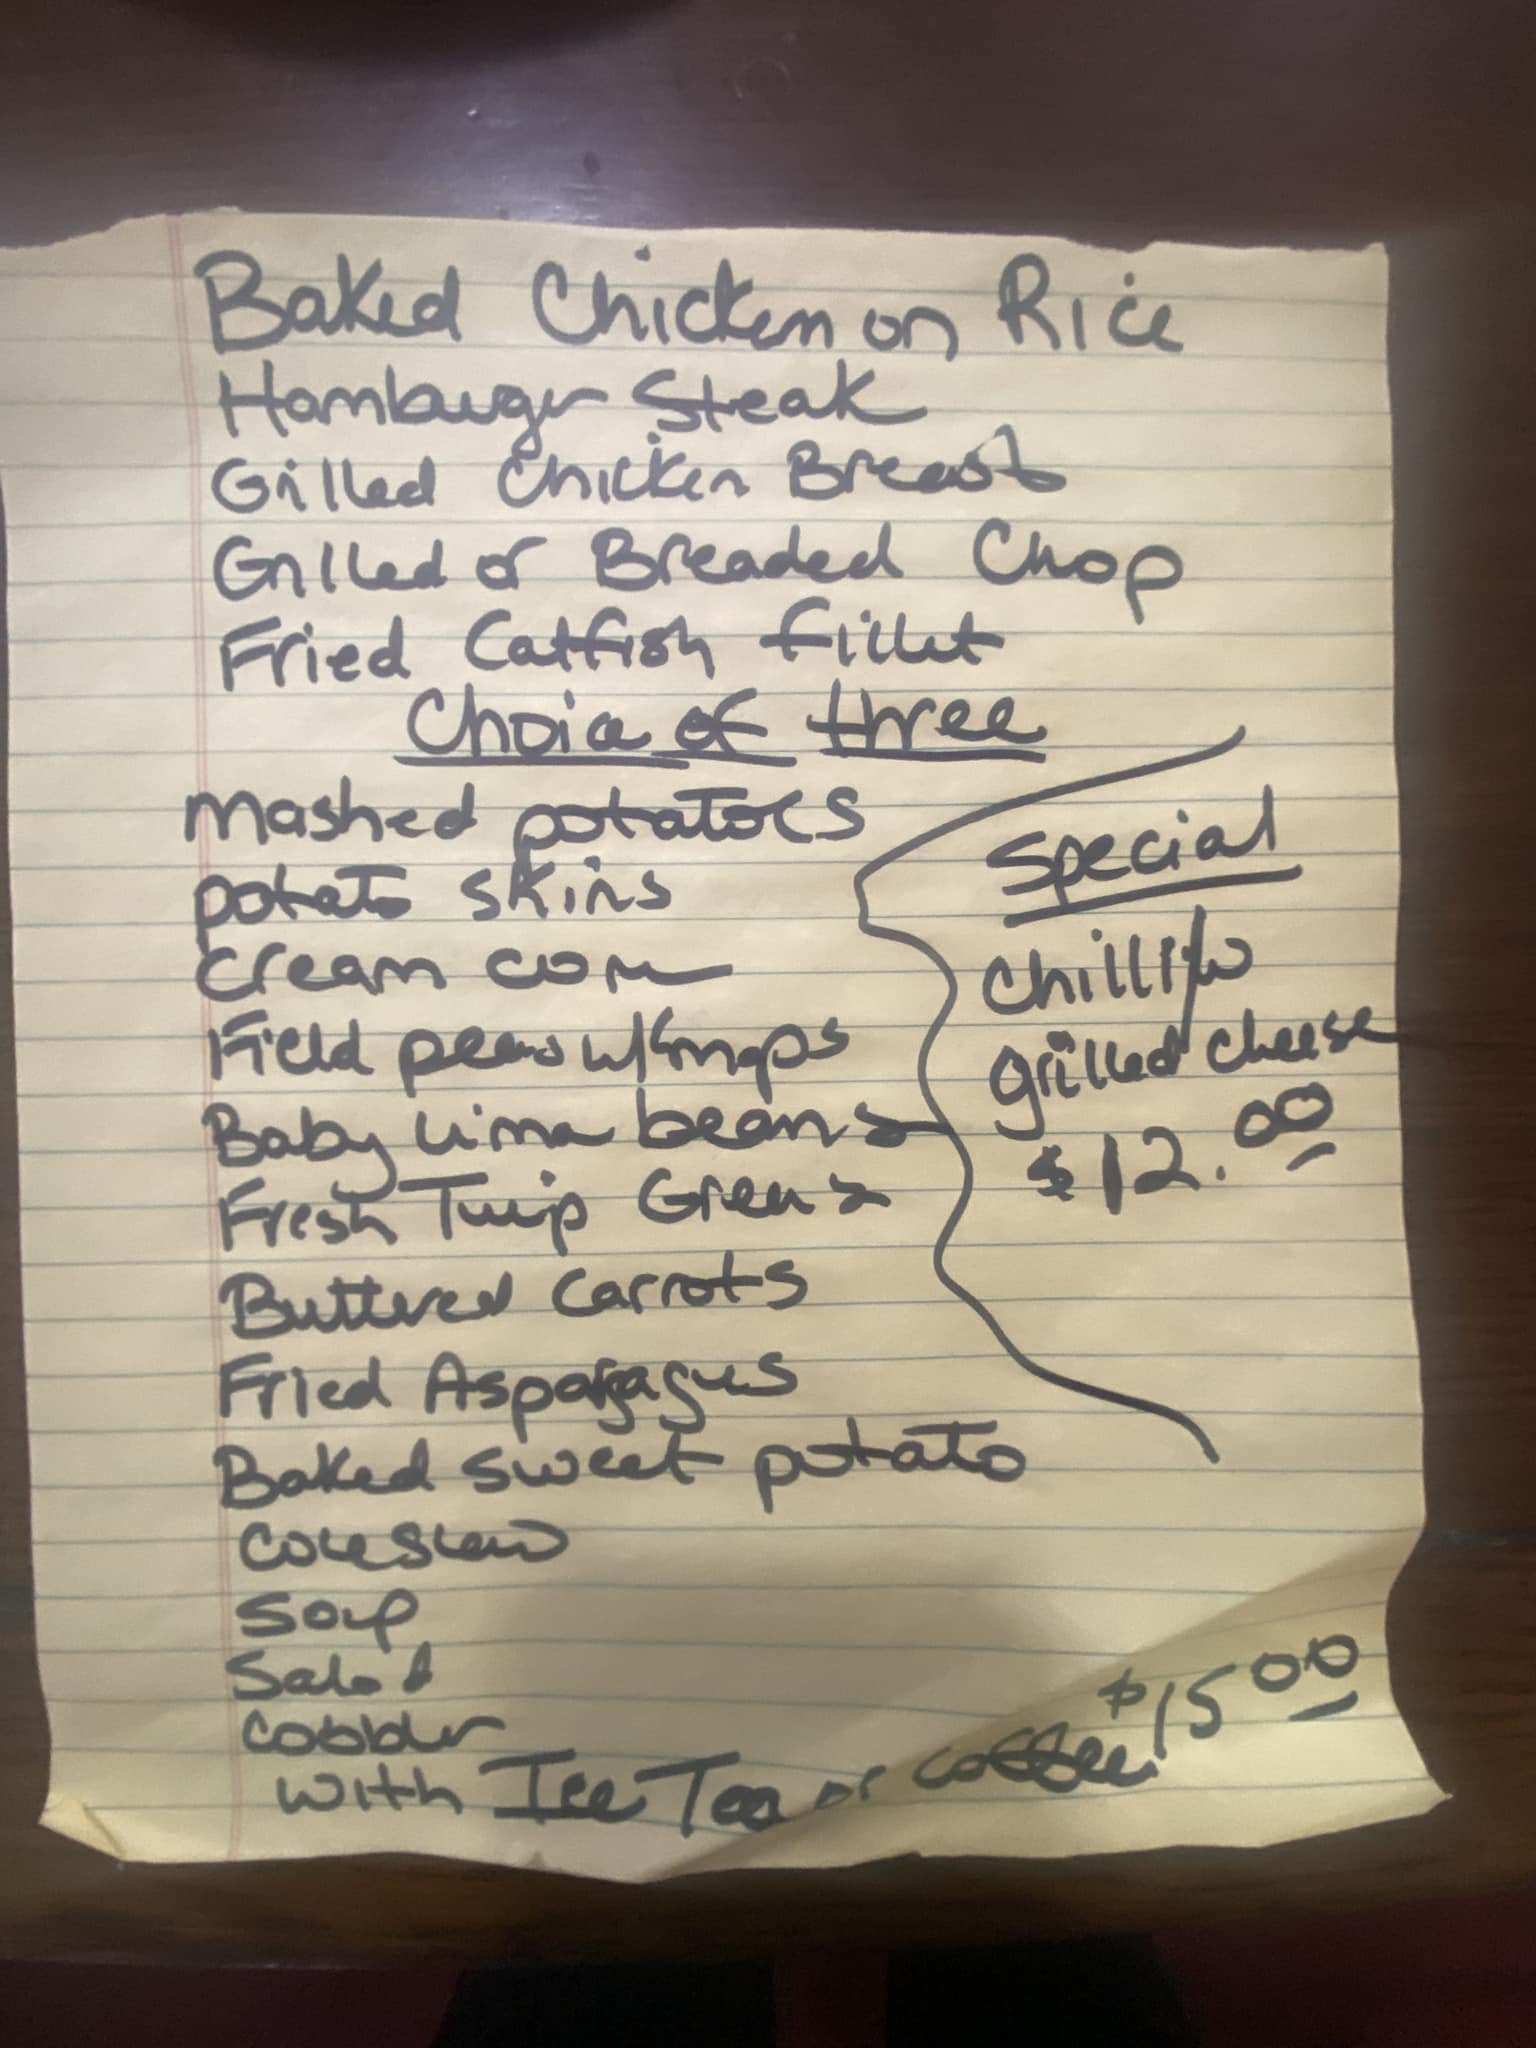 Baked Chicken on Rice
Hamburger Steak
Grilled Chicken Breast
Grilled or Breaded Chop
Fried Catfish fillet
Choice of three
Mashed potatoes
potato skins
Cream corn
Field peas w/snaps
Baby Lima beans
Fresh Turnip Greens
Buttered Carrots
Fried Asparagus
Baked sweet potato
Coleslaw
Soup
Salad
Cobbler
with Ice Tea or coffee $15.00
Special
Chilli w/
grilled cheese
$12.00